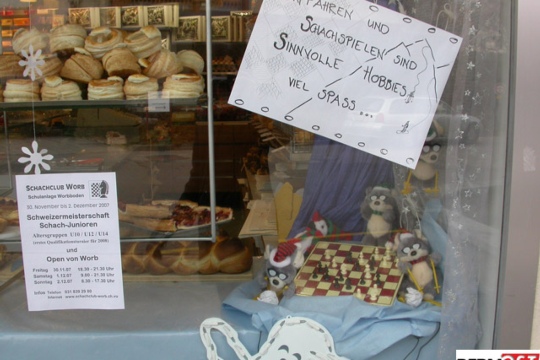 FAHREN UND
SCHACHSPIELEN SIND
SINNVOLLE HOBBIES.
VIEL SPASS...
SCHACHCLUB WORB
Schulanlage Worbboden
30. November bis 2. Dezember 2007
Schweizermeisterschaft
Schach-Junioren
Altersgruppen U10 / U12 / U14
(erstes Qualifikationsturnier für 2008)
und
Open von Worb
Freitag 30.11.07
Samstag 1.12.07
Sonntag 2.12.07